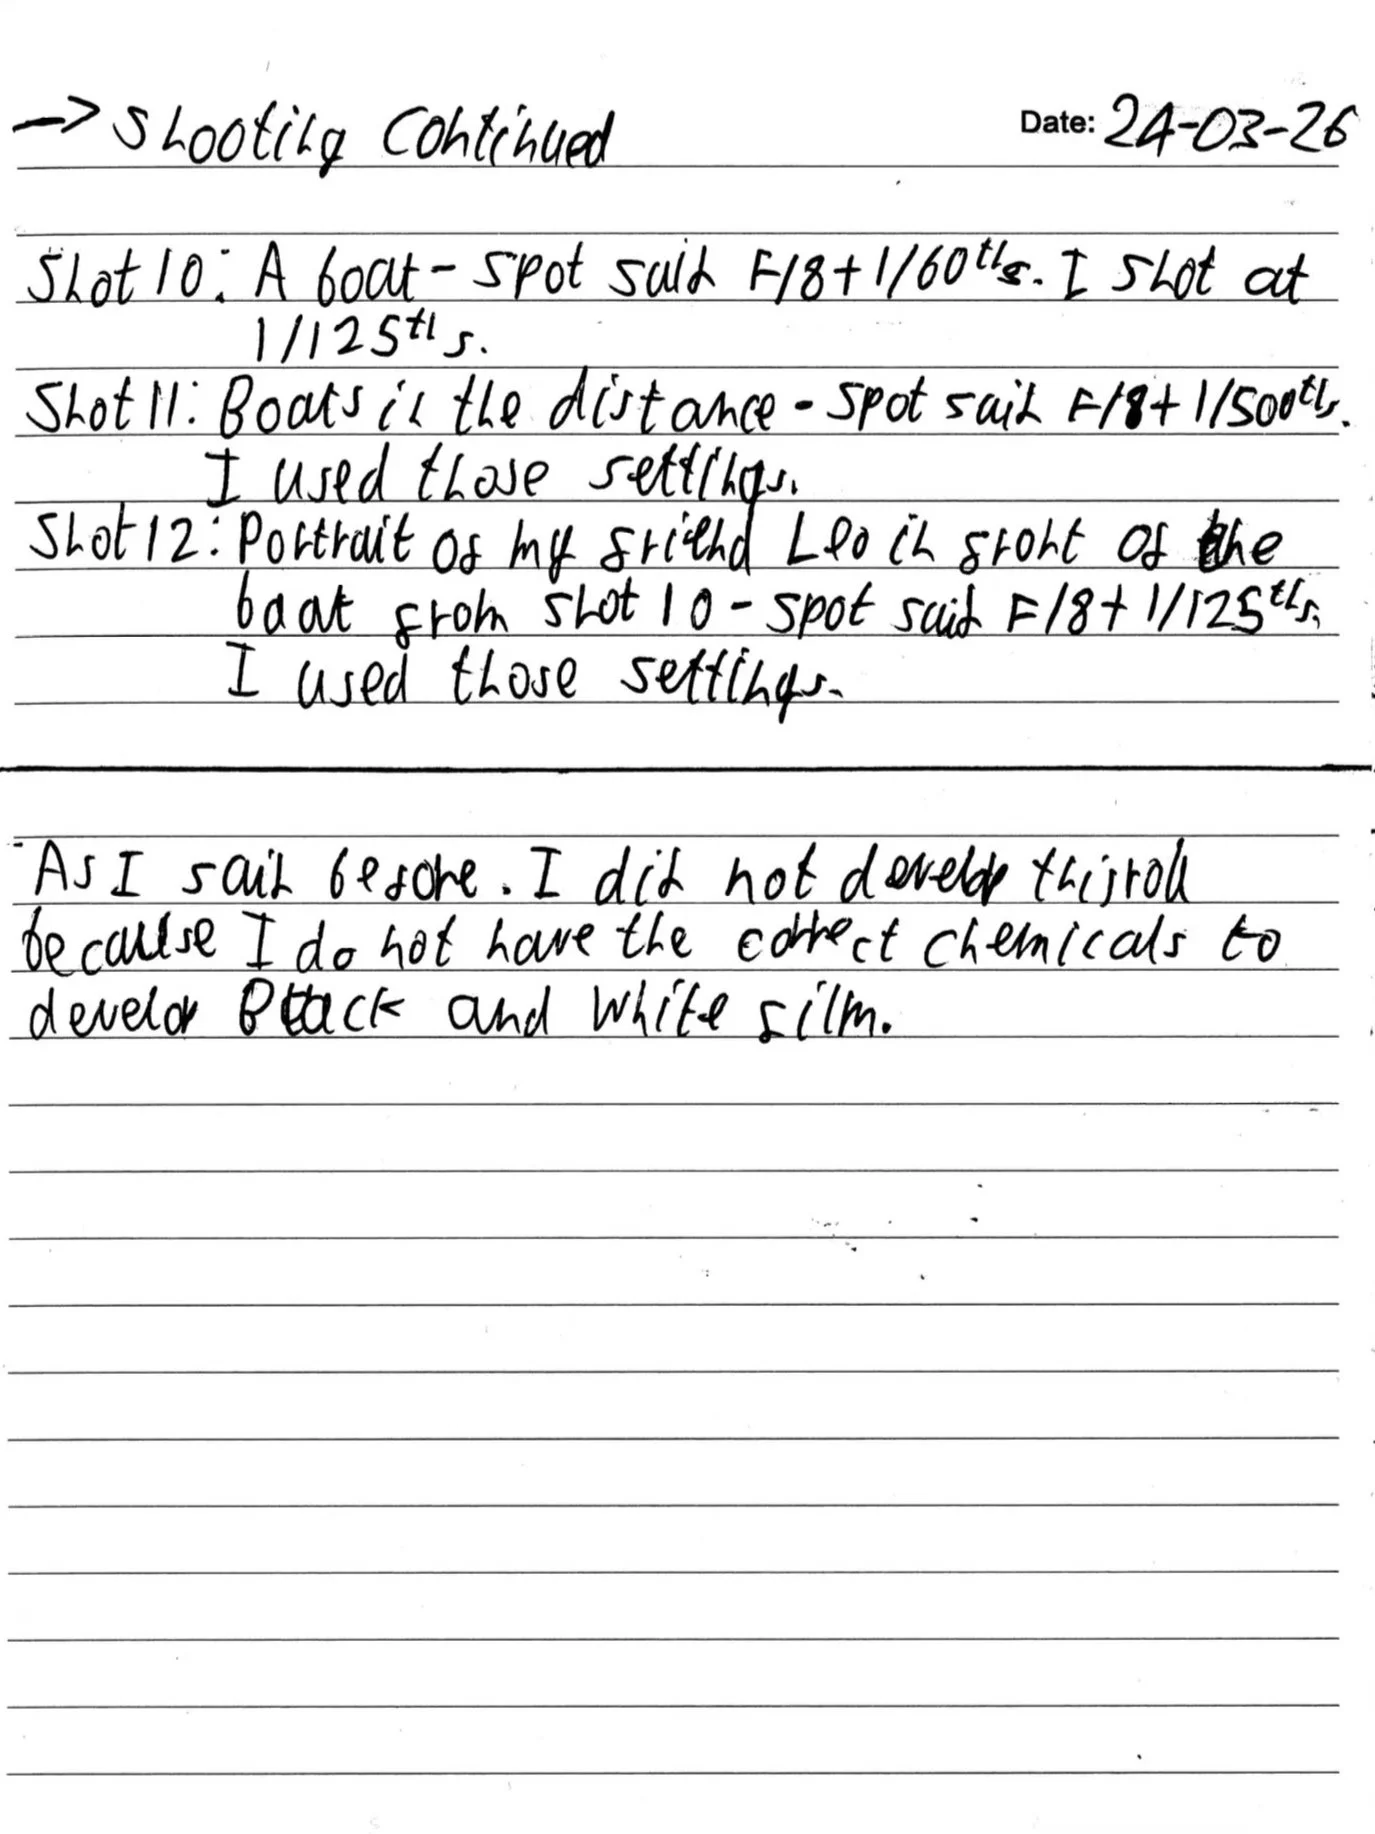 → Shooting Continued
Date: 24-03-26
Shot 10: A boat - Spot said F/8 + 1/60ths. I shot at
1/125ths.
Shot 11: Boats in the distance - Spot said F/8 + 1/500ths.
I used those settings.
Shot 12: Portrait of my friend Leo in front of the
boat from shot 10 - Spot said F/8 + 1/125ths.
I used those settings.
As I said before. I did not develop this roll
because I do not have the correct chemicals to
develop Black and White film.